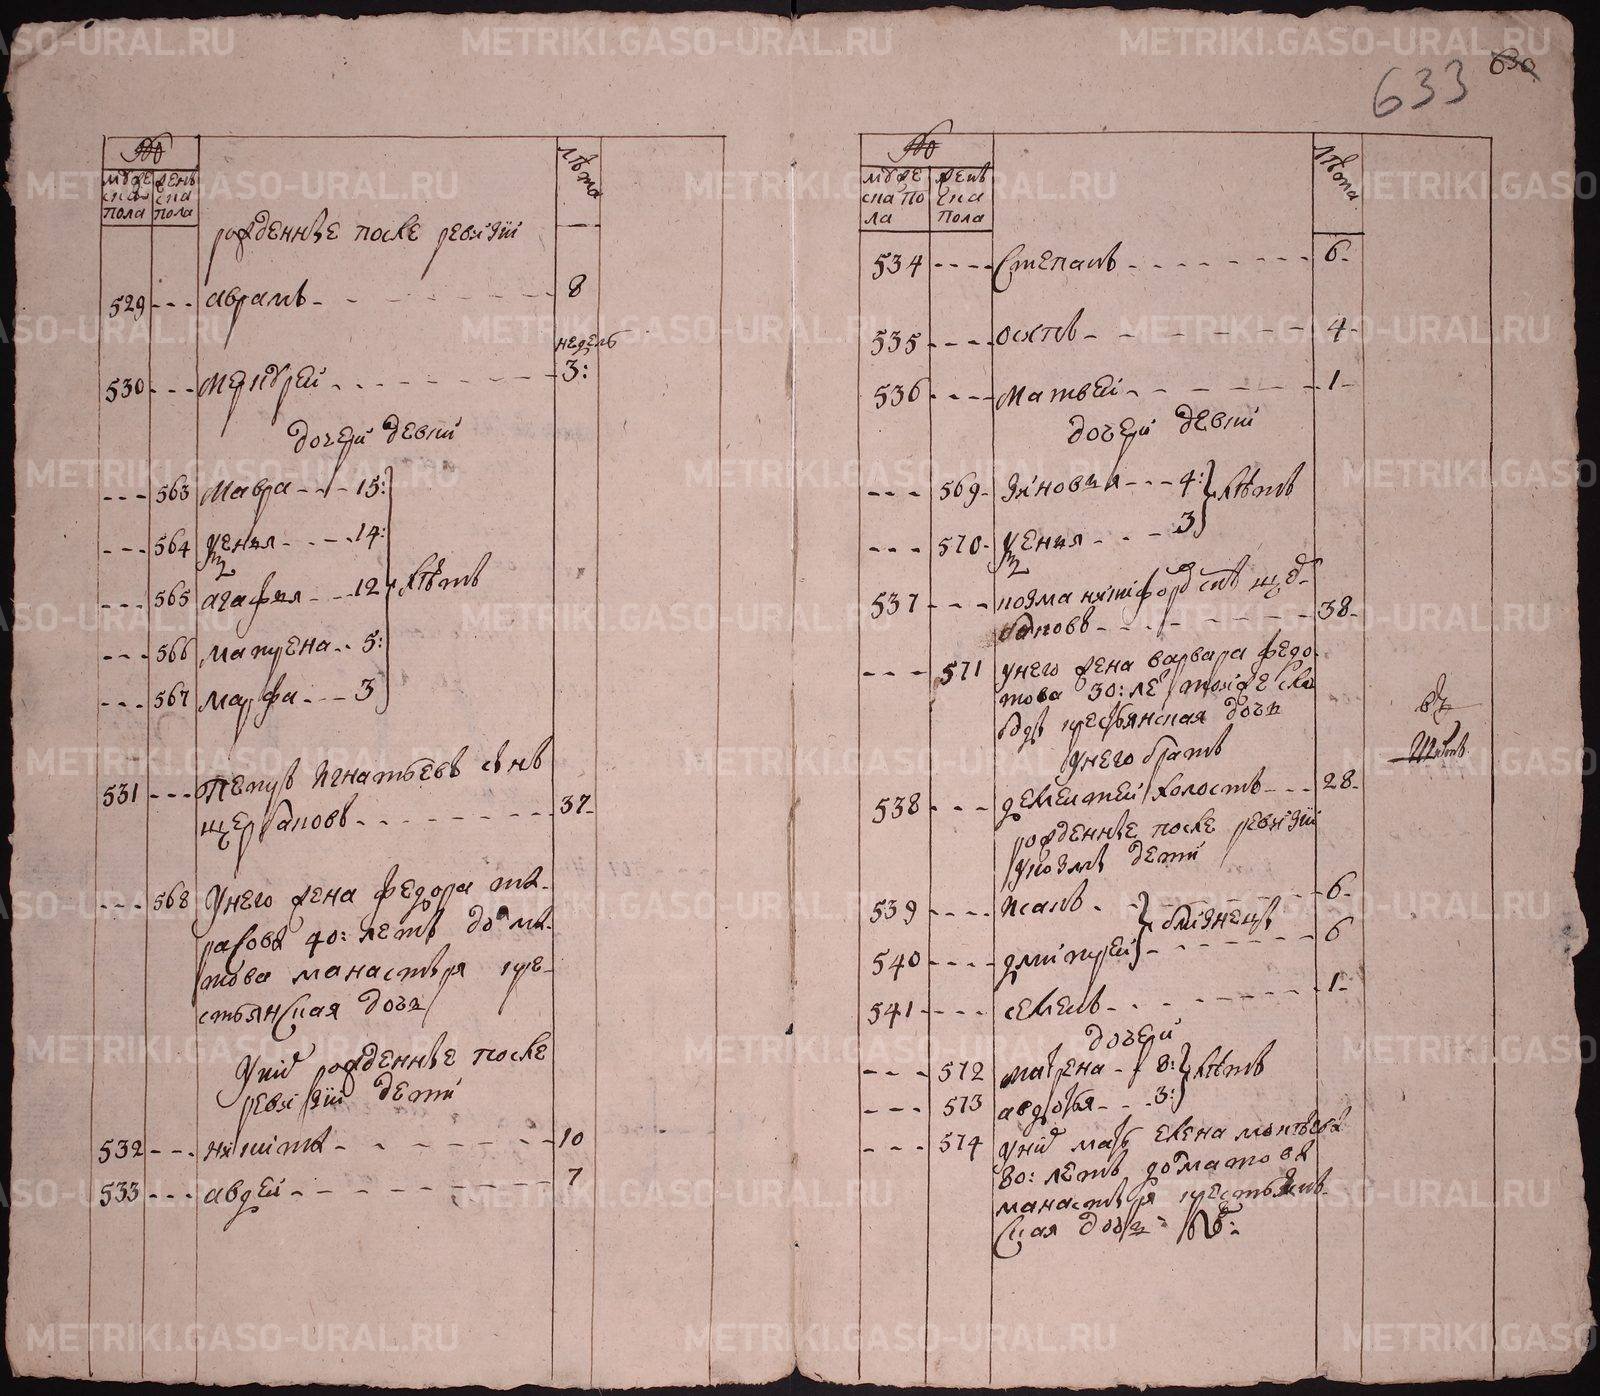 633
630
№
мужеска пола
женска пола
лѣта
рожденные после ревизiи
529 --- аврамъ - - - 8
недель
530 --- меркурей - - - 3:
дочери девки
--- 563 мавра --- 15:
--- 564 ксенья --- 14:
--- 565 агафья --- 12
лѣтъ
--- 566 матрена -- 5:
--- 567 марфа --- 3
531 --- петръ игнатьевъ сынъ
щербаковъ - - - 37-
--- 568 унего жена федора та-
расова 40: летъ долма-
това манастыря кре-
стьянская дочь
уних рожденные после
ревизiи дети
532 --- никита - - - 10
533 --- авдей - - - 7
№
мужеска пола
женска пола
лѣта
534 ---- степанъ - - - 6-
535 ---- осипъ - - - 4-
536 ---- матвей - - - 1-
дочери девки
--- 569- зиновья --- 4:
лѣтъ
--- 570- ксенья - - - 3
537 --- козма никифоров снъ щер-
баковъ - - - 38-
--- 571 унего жена варвара федо-
това 30: ле тояже сло
боды крестьянская дочь
унего братъ
538 --- дементей холостъ --- 28-
рожденные после ревизiи
укозмы дети
539 ---- исакъ - - - 6-
близнецы
540 ---- дмитрей - - - 6
541 ---- семенъ - - - 1-
дочери
--- 572 матрена -- 8:
лѣтъ
--- 573 авдотья --- 3:
--- 574 уних мать елена
80: летъ долматова
манастыря крестьянъ-
ская дочь